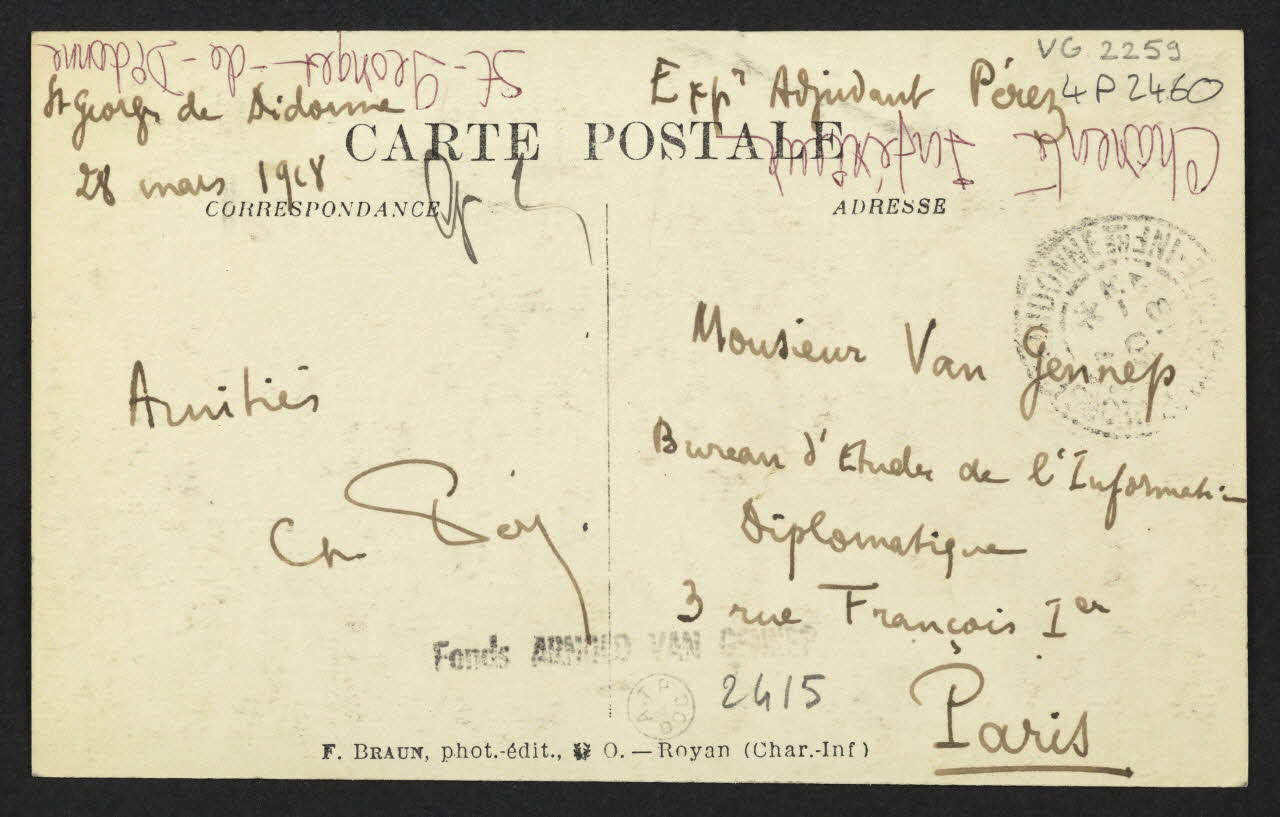 St-Georges-de-Didonne
VG 2259
St Georges de Didonne
Expr Adjudant Pérez
4P2460
Charente Inférieure
CARTE POSTALE
28 mars 1918
CORRESPONDANCE
ADRESSE
DIDONNE
Monsieur Van Gennep
Amitiés
Bureau d'Etudes de l'Information
Diplomatique
Ch
3 rue François Ier
Fonds ARNOLD VAN GENNEP
2415
A.T.P. DOC
Paris
F. BRAUN, phot.-édit., O. — Royan (Char.-Inf)